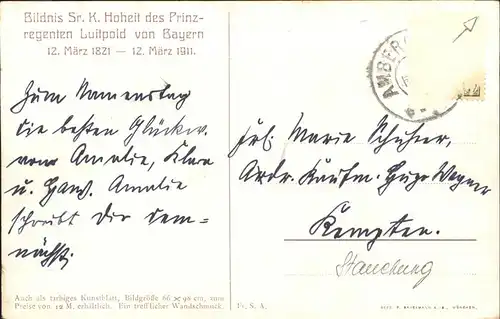 Bildnis Sr. K. Hoheit des Prinz-
regenten Luitpold von Bayern
12. März 1821 — 12. März 1911.
AMBERG
Zum Namenstag
die besten Glückw.
von Amalie, Klara
u. Hans. Amalie
schreibt Dir dem=
nächst.
Frl. Marie
Adr. Kaufm. Hugo Wagner
Kempten.
Auch als farbiges Kunstblatt, Bildgröße 66 × 98 cm, zum
Preise von 12 M. erhältlich. Ein trefflicher Wandschmuck.